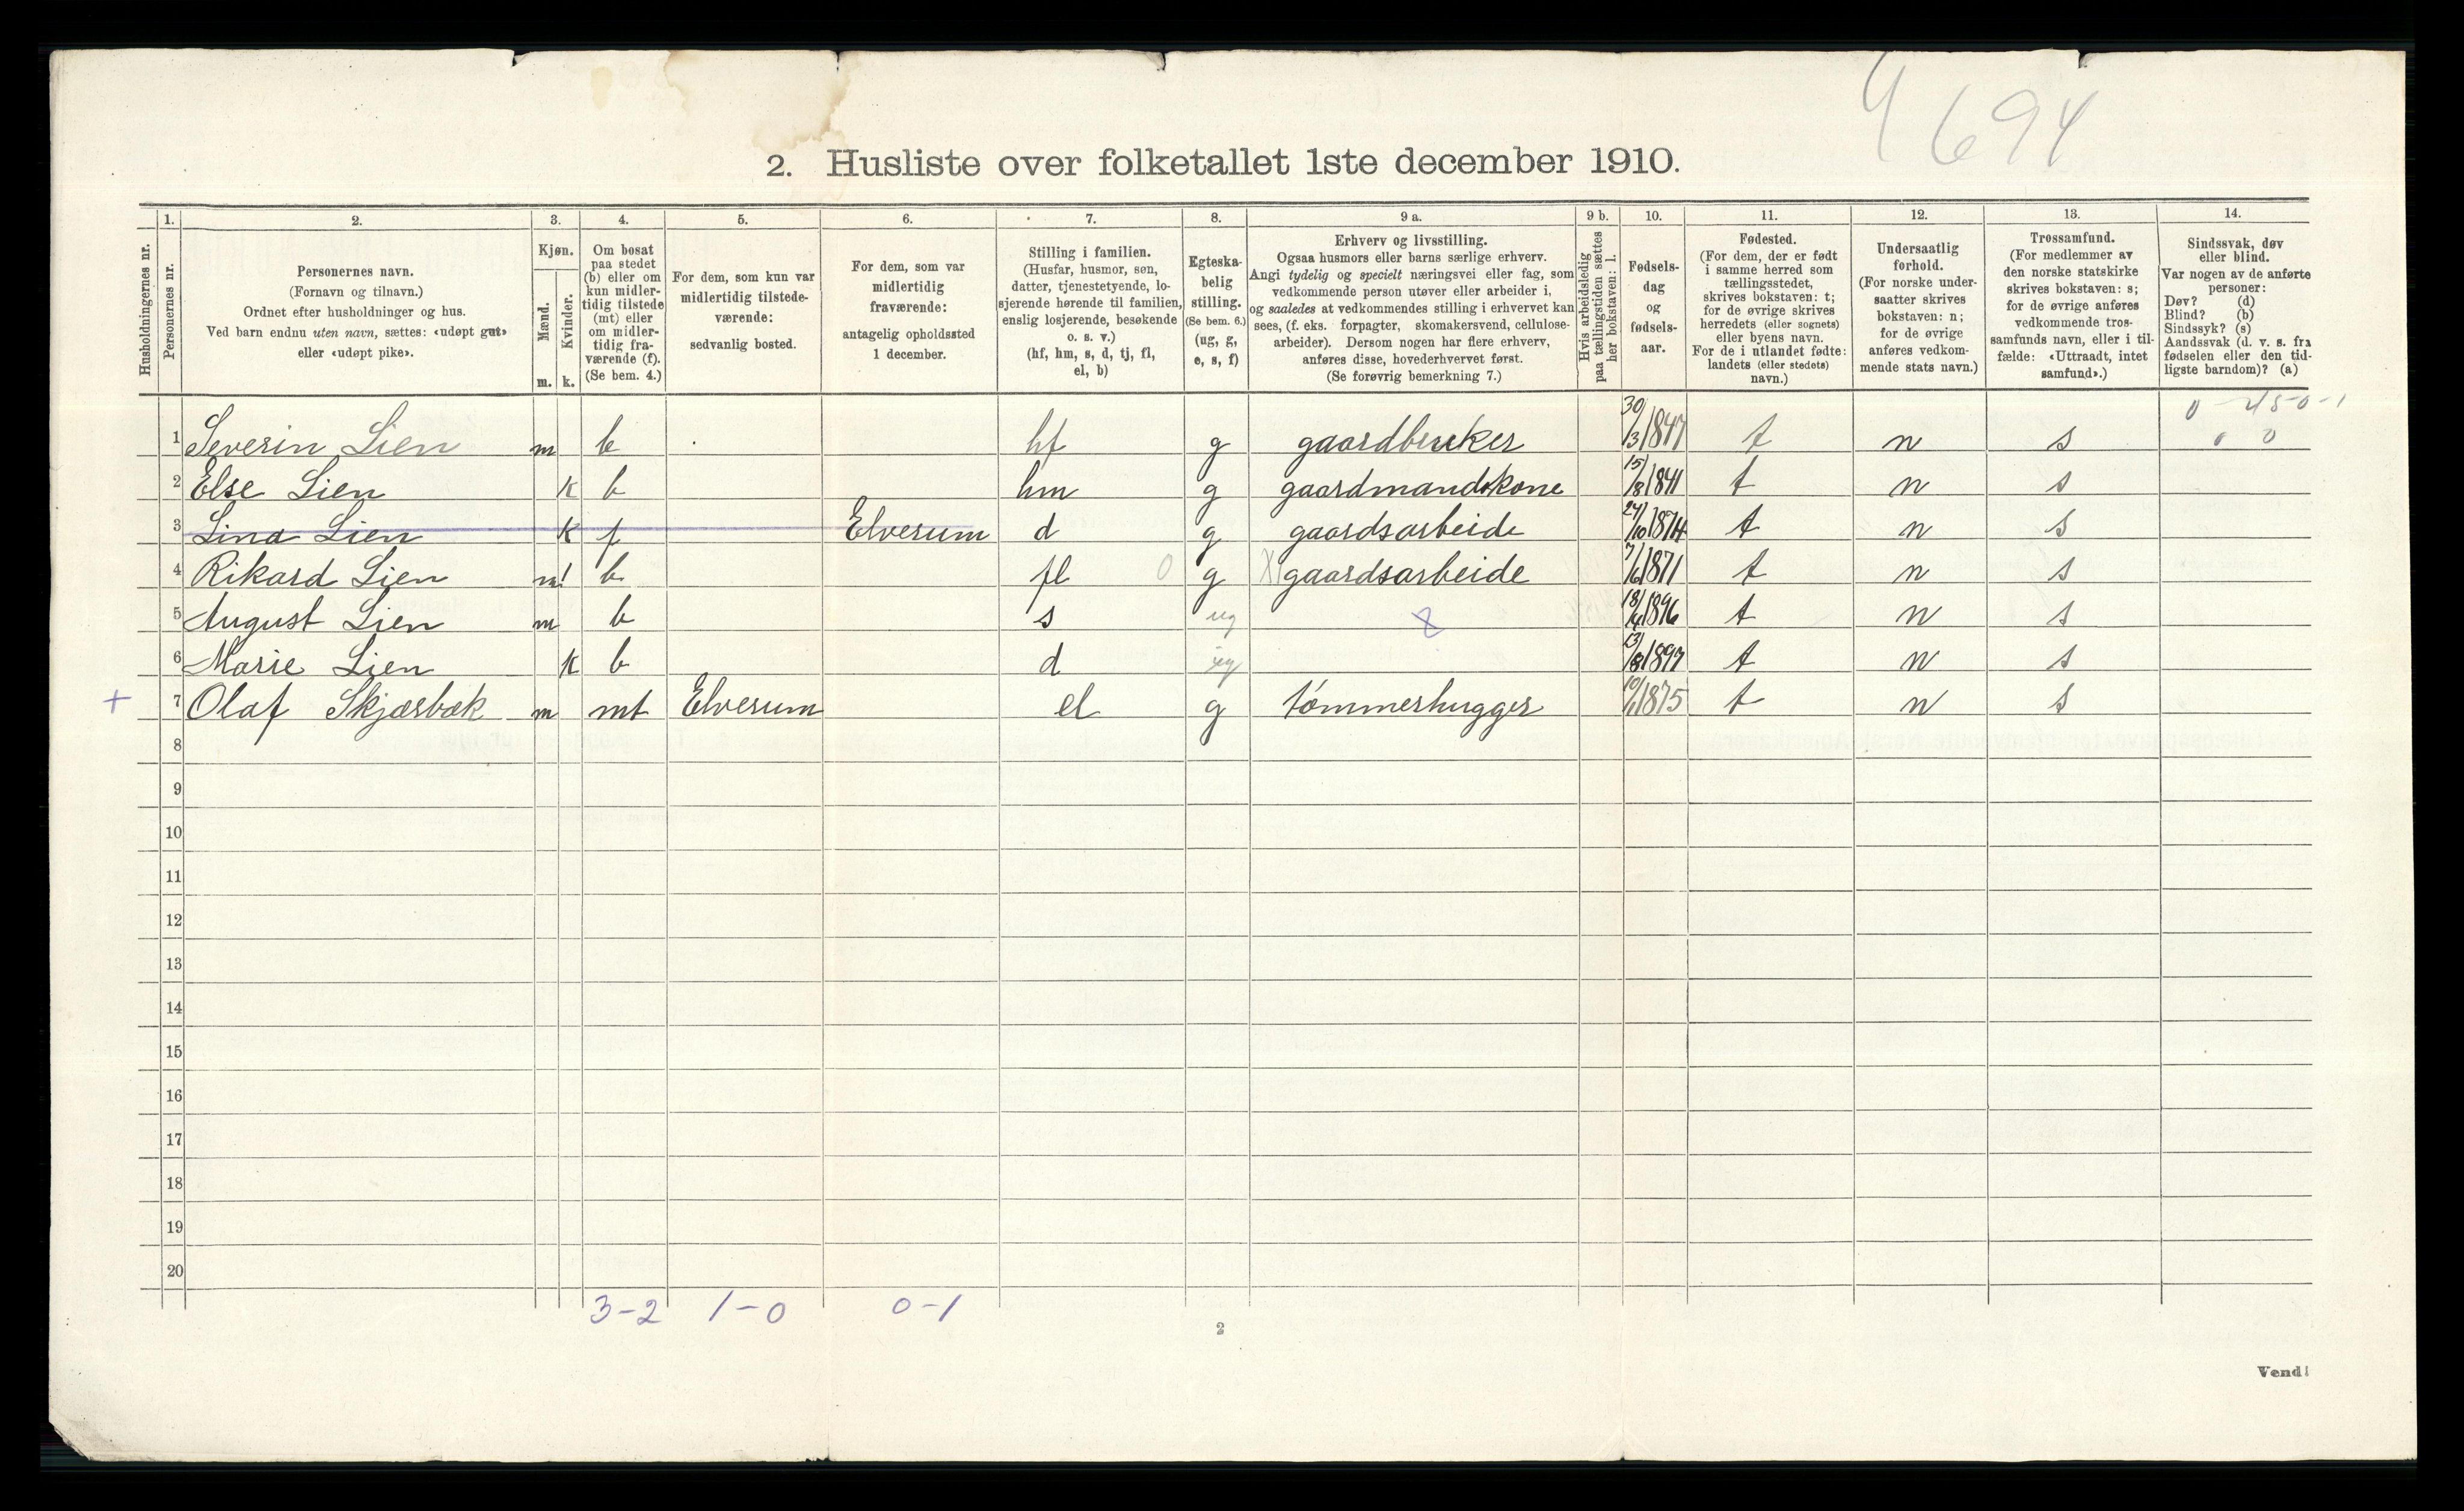 4 694
2. Husliste over folketallet 1ste december 1910.
Husholdningernes nr.
1. Personernes nr.
2. Personernes navn.
(Fornavn og tilnavn.)
Ordnet efter husholdninger og hus.
Ved barn endnu uten navn, sættes: «udøpt gut»
eller «udøpt pike».
3. Kjøn.
Mænd. m.
Kvinder. k.
4. Om bosat
paa stedet
(b) eller om
kun midler-
tidig tilstede
(mt) eller
om midler-
tidig fra-
værende (f).
(Se bem. 4.)
5. For dem, som kun var
midlertidig tilstede-
værende:
sedvanlig bosted.
6. For dem, som var
midlertidig
fraværende:
antagelig opholdssted
1 december.
7. Stilling i familien.
(Husfar, husmor, søn,
datter, tjenestetyende, lo-
sjerende hørende til familien,
enslig losjerende, besøkende
o. s. v.)
(hf, hm, s, d, tj, fl,
el, b)
8. Egteska-
belig
stilling.
(Se bem. 6.)
(ug, g,
e, s, f)
9 a. Erhverv og livsstilling.
Ogsaa husmors eller barns særlige erhverv.
Angi tydelig og specielt næringsvei eller fag, som
vedkommende person utøver eller arbeider i,
og saaledes at vedkommendes stilling i erhvervet kan
sees, (f. eks. forpagter, skomakersvend, cellulose-
arbeider). Dersom nogen har flere erhverv,
anføres disse, hovederhvervet først.
(Se forøvrig bemerkning 7.)
9 b. Hvis arbeidsledig
paa tællingstiden sættes
her bokstaven: l.
10. Fødsels-
dag
og
fødsels-
aar.
11. Fødested.
(For dem, der er født
i samme herred som
tællingsstedet,
skrives bokstaven: t;
for de øvrige skrives
herredets (eller sognets)
eller byens navn.
For de i utlandet fødte:
landets (eller stedets)
navn.)
12. Undersaatlig
forhold.
(For norske under-
saatter skrives
bokstaven: n;
for de øvrige
anføres vedkom-
mende stats navn.)
13. Trossamfund.
(For medlemmer av
den norske statskirke
skrives bokstaven: s;
for de øvrige anføres
vedkommende tros-
samfunds navn, eller i til-
fælde: «Uttraadt, intet
samfund».)
14. Sindssvak, døv
eller blind.
Var nogen av de anførte
personer:
Døv? (d)
Blind? (b)
Sindssyk? (s)
Aandssvak (d. v. s. fra
fødselen eller den tid-
ligste barndom)? (a)
1 Severin Lien m b hf g gaardbruker 30/3 1847 t n s
2 Else Lien k b hm g gaardmandskone 15/8 1841 t n s
3 Lina Lien k f Elverum d g gaardsarbeide 24/10 1874 t n s
4 Rikard Lien m! b fl 0 g X gaardsarbeide 7/6 1871 t n s
5 August Lien m b s ug 18/4 1896 t n s
6 Marie Lien k b d ug 13/8 1897 t n s
+ 7 Olaf Skjærbæk m mt Elverum el g tømmerhugger 10/1 1875 t n s
8
9
10
11
12
13
14
15
16
17
18
19
20
3-2 1-0 0-1
2
Vend!